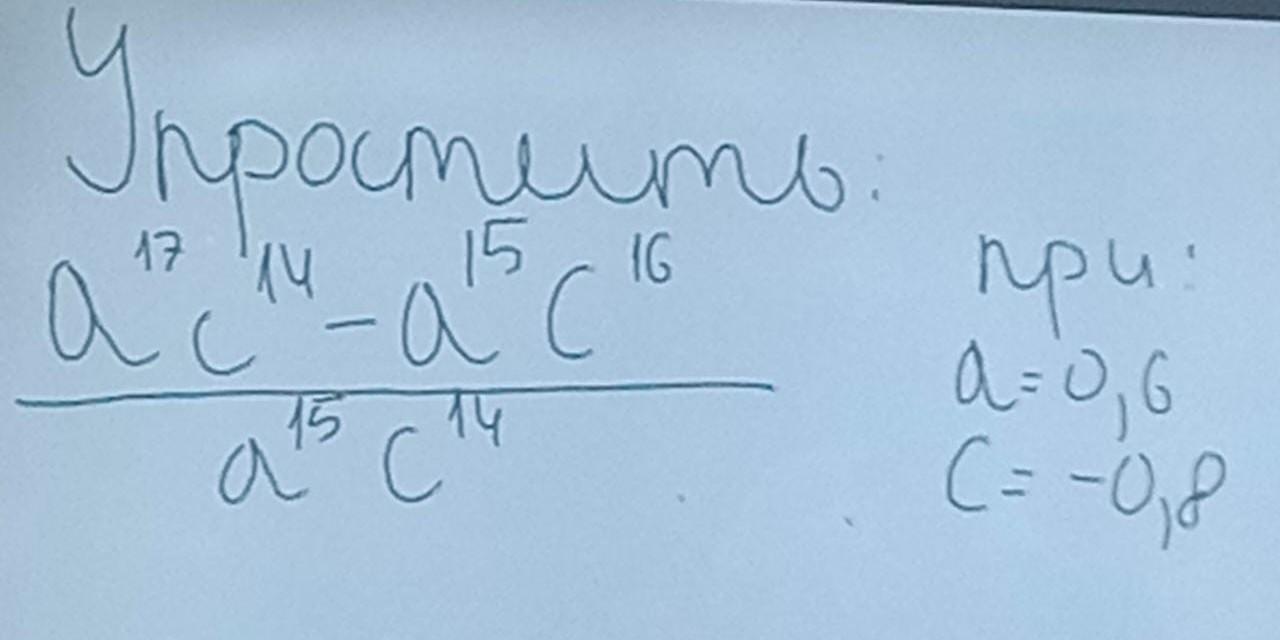 Упростить:
a¹⁷c¹⁴ - a¹⁵c¹⁶
a¹⁵c¹⁴
при:
a=0,6
c=-0,8